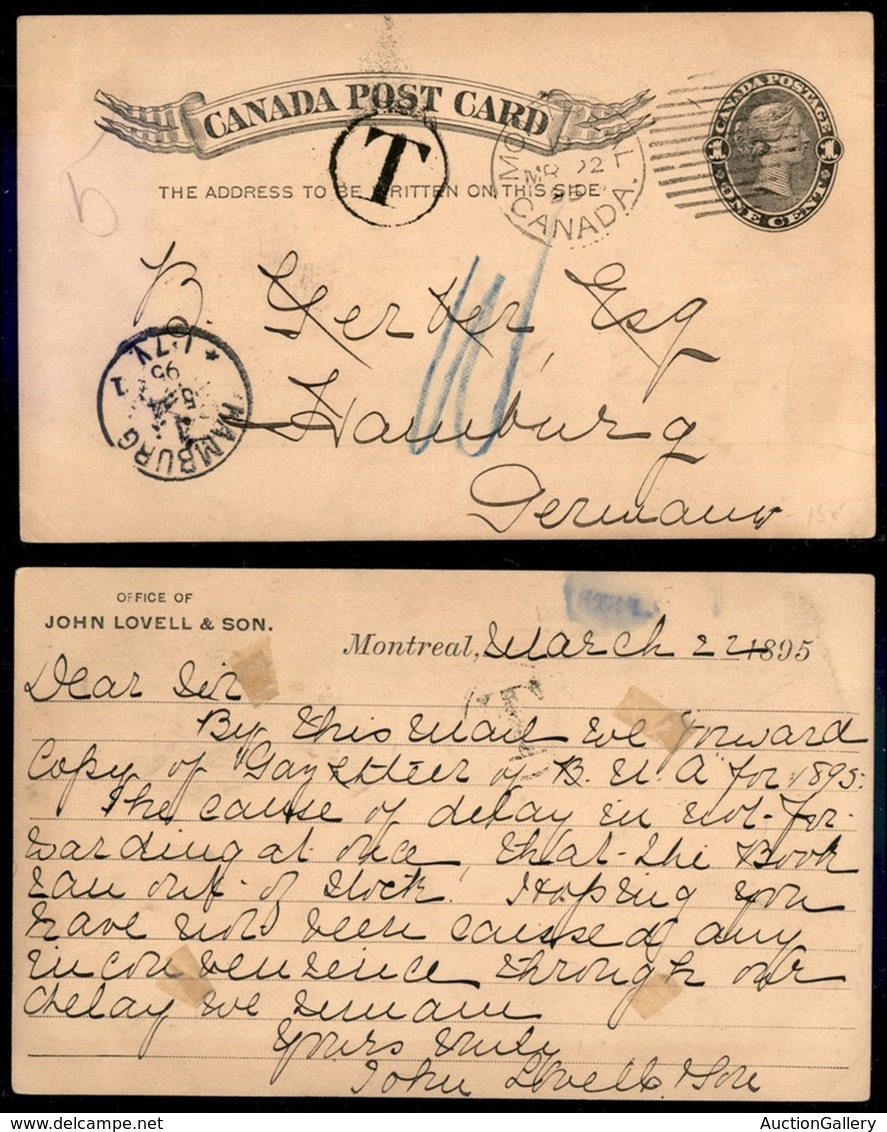 CANADA POST CARD
THE ADDRESS TO BE WRITTEN ON THIS SIDE
T
CANADA.
CANADA POSTAGE
1 1
ONE CENT
B. Gerber Esq
Hamburg
Germany
HAMBURG
1
5
4
95
1.7N.
OFFICE OF
JOHN LOVELL & SON.
Montreal, March 22 1895
Dear Sir
By this mail we forward
Copy of "Gazetteer of B. N. A" for 1895.
The cause of delay in not for-
warding at once, that the Book
ran out of stock. Hoping you
have not been caused any
inconvenience through our
delay we remain
Yours truly
John Lovell & Son
AuctionGallery